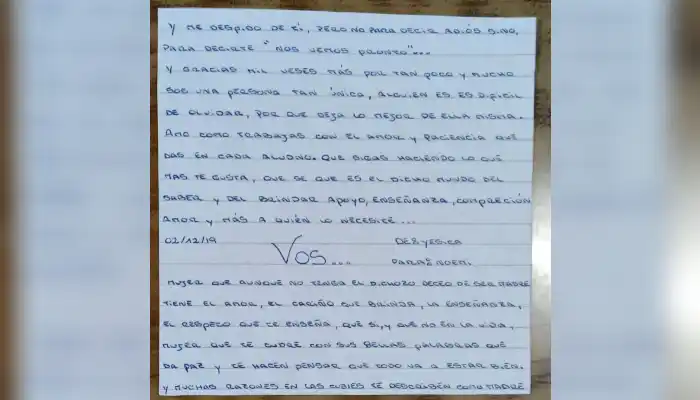 Y ME DESPIDO DE TÍ, PERO NO PARA DECIR ADIÓS SINO,
PARA DECIRTE "NOS VEMOS PRONTO"...
Y GRACIAS MIL VESES MÁS POR TAN POCO Y MUCHO
SOS UNA PERSONA TAN ÚNICA, ALGUIEN ES ES DIFICIL
DE OLVIDAR, POR QUE DEJA LO MEJOR DE ELLA MISMA.
AMO COMO TRABAJAS CON EL AMOR Y PACENCIA QUE
DAS EN CADA ALUDNO. QUE SIGAS HACIENDO LO QUE
MAS TE GUSTA, QUE SE QUE ES EL DICHO MUNDO DEL
SABER Y DEL BRINDAR APOYO, ENSEÑANZA, COMPRECIÓN
AMOR Y MÁS A QUIÉN LO NECESITE...
02/12/19 VOS... DE: YESICA
PARA: NOEMI.
MUJER QUE AUNQUE NO TENGA EL DICHOZO DECEO DE SER MADRE
TIENE EL AMOR, EL CARIÑO QUE BRINDA, LA ENSEÑANZA,
EL RESPECO QUE TE ENSEÑA, QUE SI, Y QUE NO EN LA VIDA,
MUJER QUE TE CUBRE CON SUS BELLAS PALABRAS QUE
DA PAZ Y TE HACEN PENSAR QUE TODO VA A ESTAR BIEN.
Y MUCHAS RAZONES EN LAS CUALES SE DESCRIBEN COMO MADRE